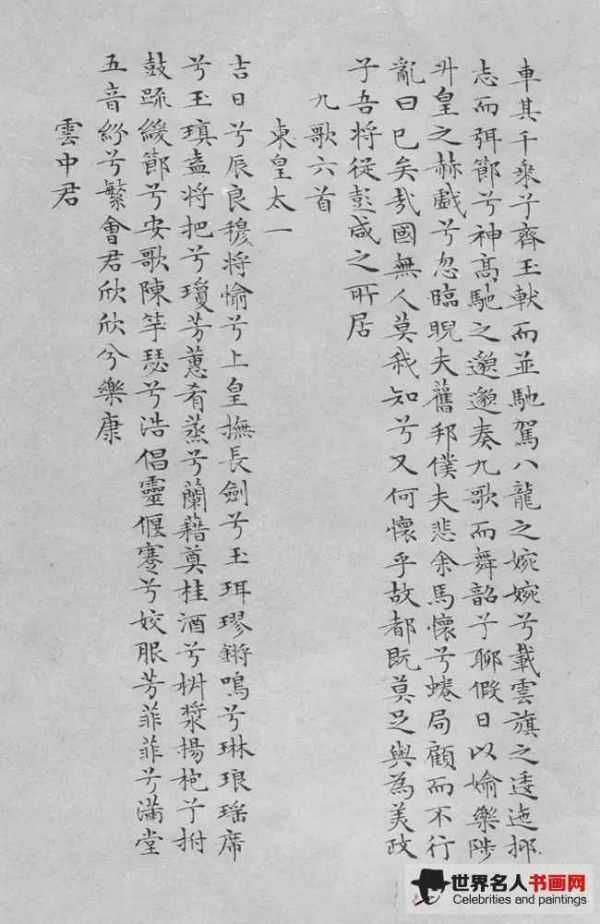 車其千乘兮齊玉軑而並馳駕八龍之婉婉兮載雲旗之逶迤抑
志而弭節兮神高馳之邈邈奏九歌而舞韶兮聊假日以媮樂陟
升皇之赫戲兮忽臨睨夫舊邦僕夫悲余馬懷兮蜷局顧而不行
亂曰已矣哉國無人莫我知兮又何懷乎故都既莫足與為美政
子吾將從彭咸之所居
九歌六首
東皇太一
吉日兮辰良穆將愉兮上皇撫長劍兮玉珥璆鏘鳴兮琳琅瑤席
兮玉瑱盍將把兮瓊芳蕙肴蒸兮蘭藉奠桂酒兮椒漿揚枹兮拊
鼓疏緩節兮安歌陳竽瑟兮浩倡靈偃蹇兮姣服芳菲菲兮滿堂
五音紛兮繁會君欣欣兮樂康
雲中君
世界名人书画网
Celebrities and paintings